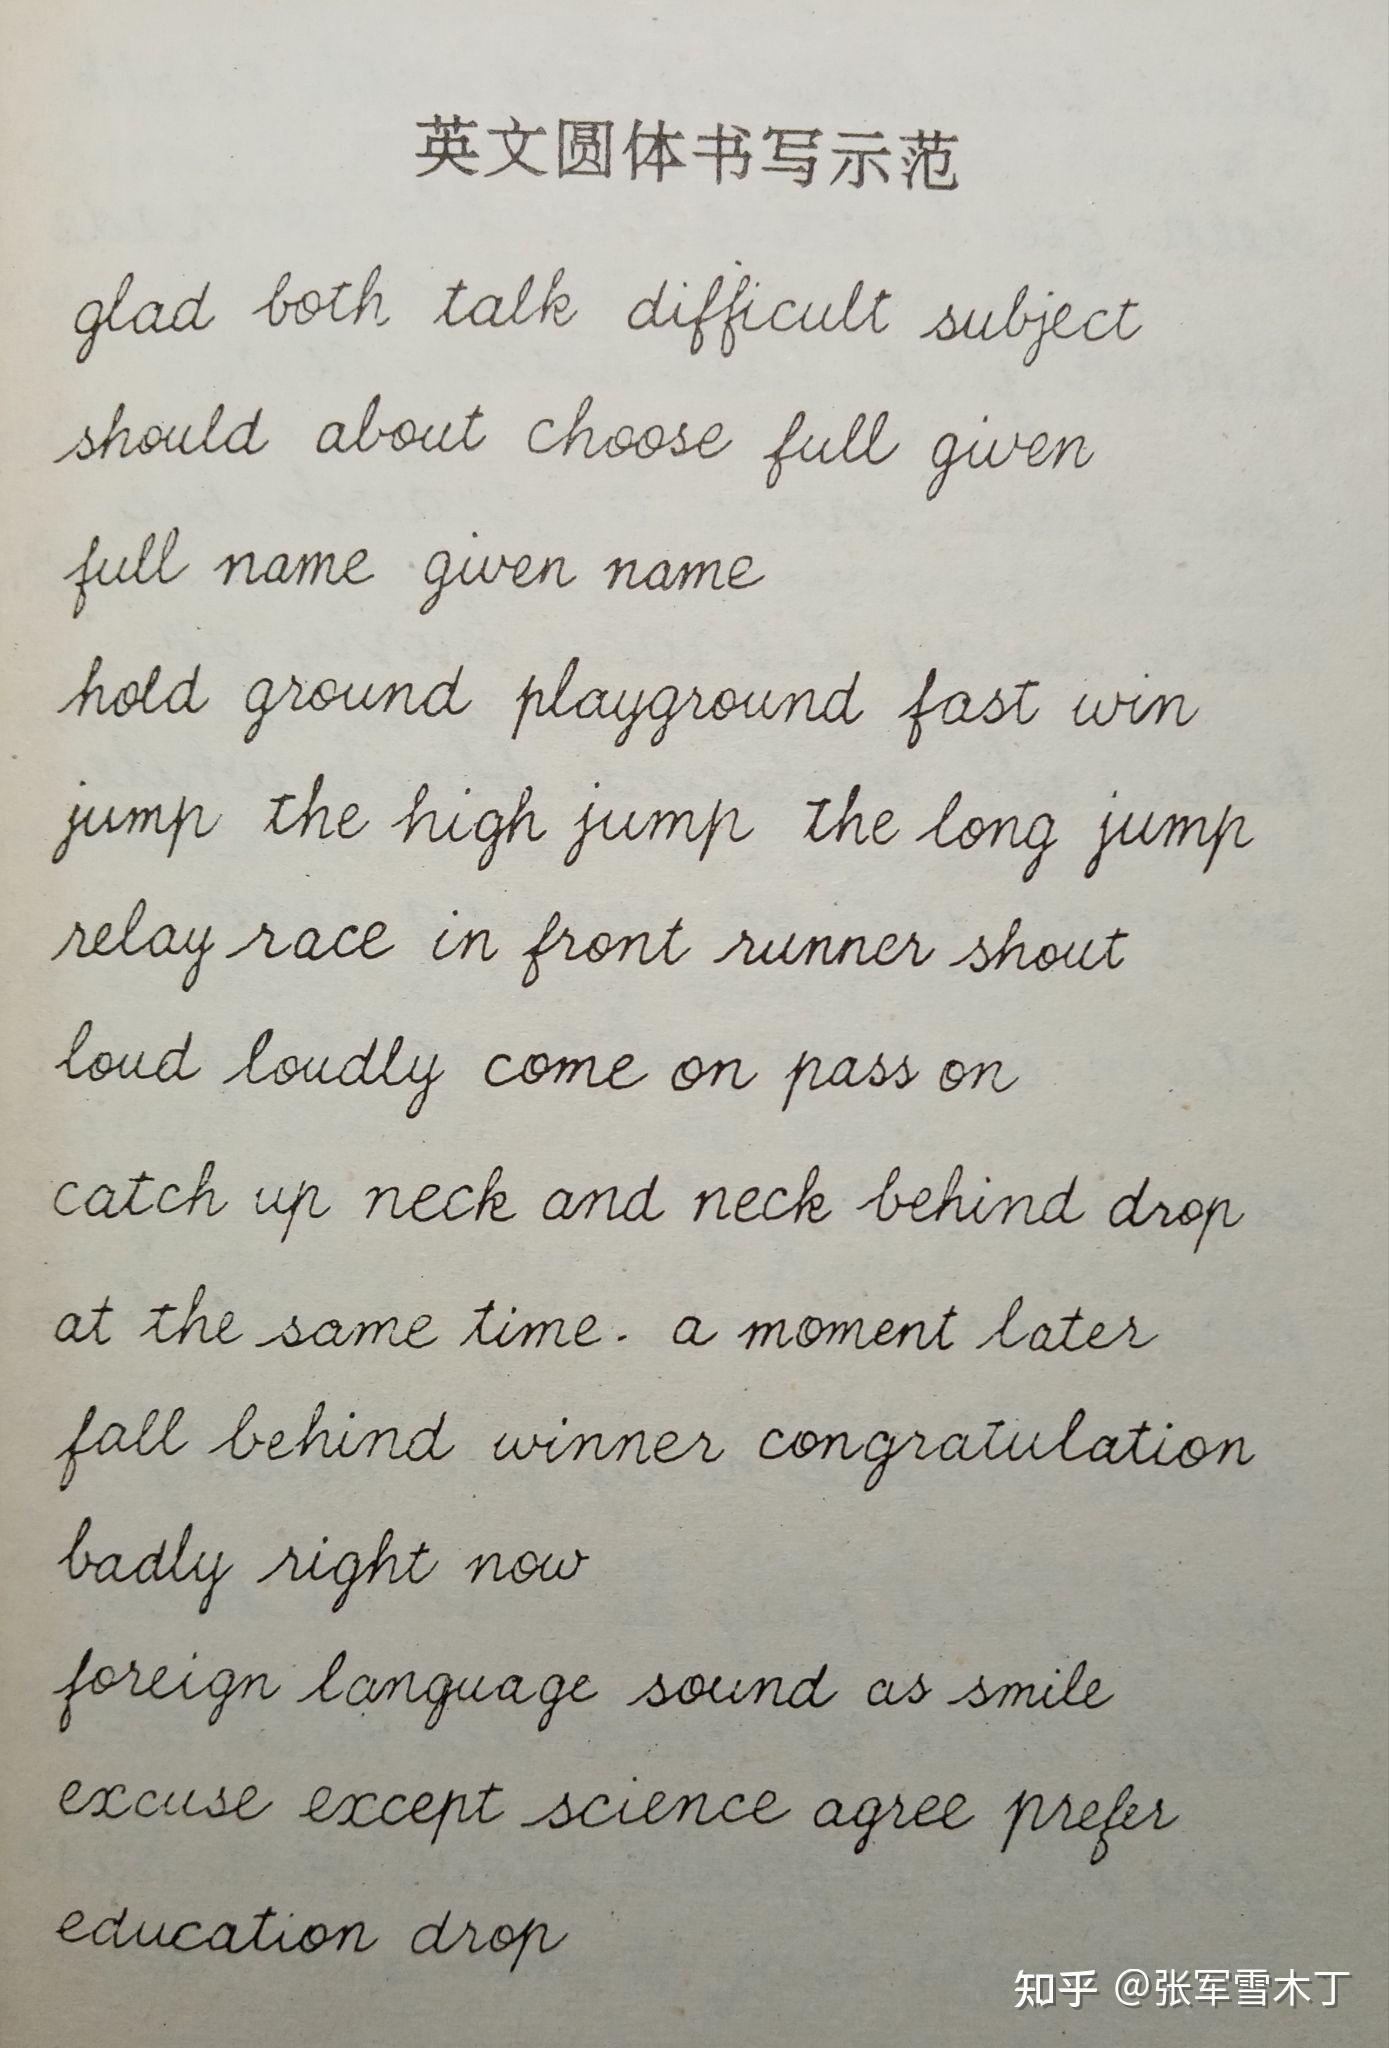 英文圆体书写示范
glad both talk difficult subject
should about choose full given
full name given name
hold ground playground fast win
jump the high jump the long jump
relay race in front runner shout
loud loudly come on pass on
catch up neck and neck behind drop
at the same time. a moment later
fall behind winner congratulation
badly right now
foreign language sound as smile
excuse except science agree prefer
education drop
知乎 @张军雪木丁